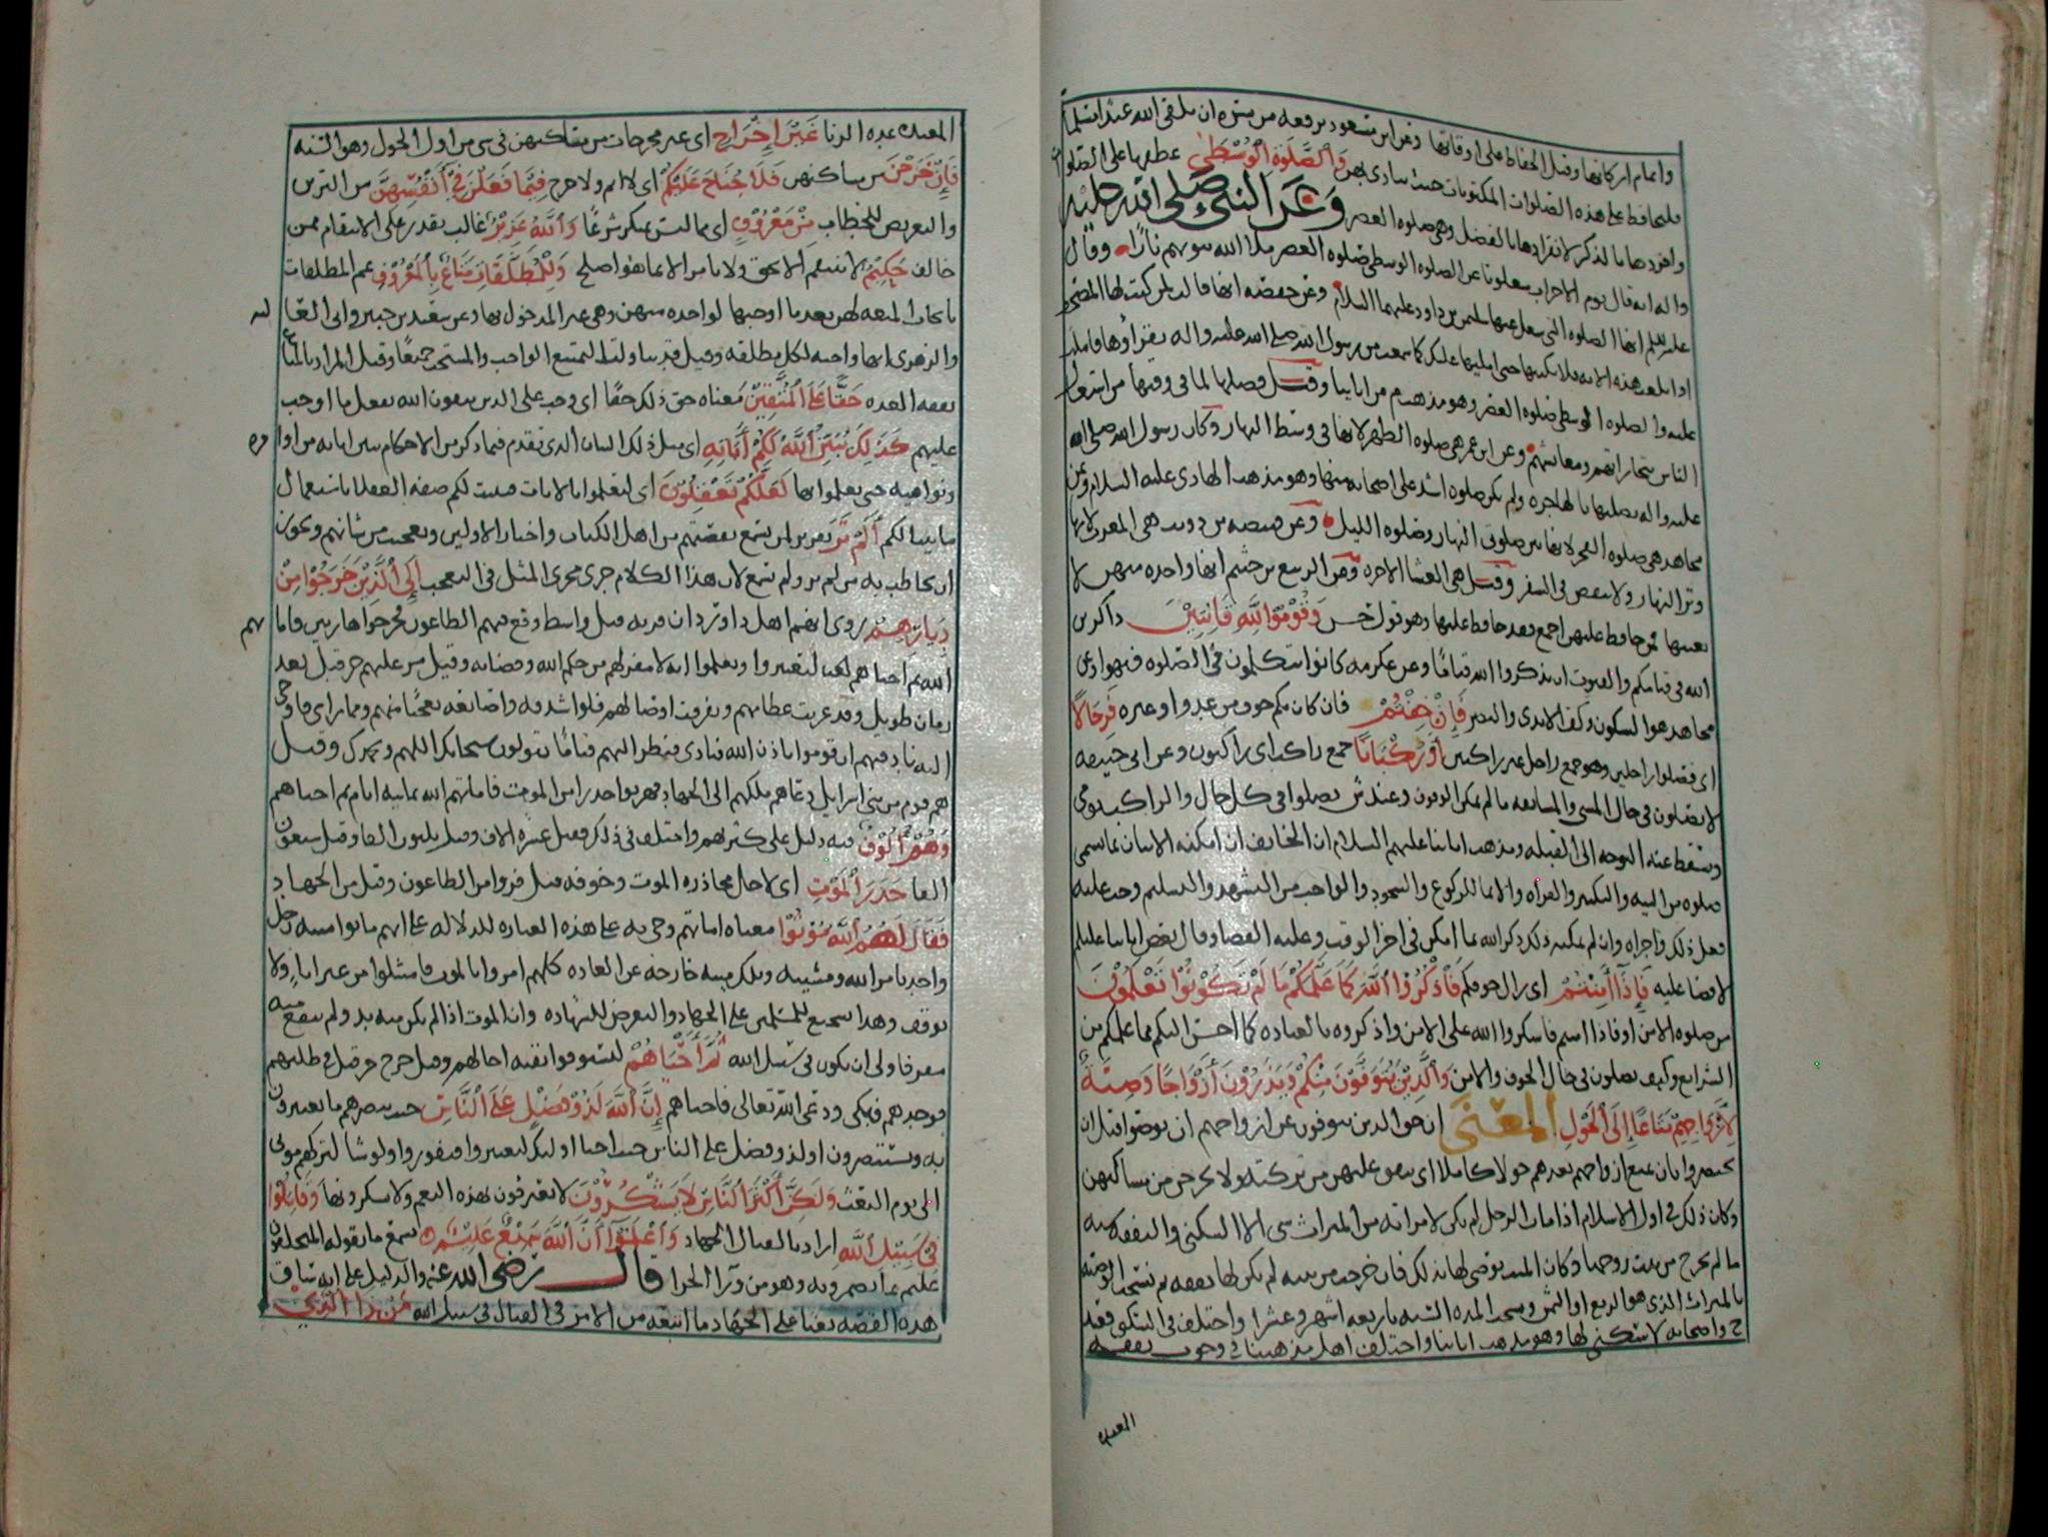 واتمام اركانها وقيل الحفاظ على اوقاتها وعن ابن مسعود يرفعه من سره ان يلقى الله عبدا مسلما
فليحافظ على هذه الصلوات المكتوبات حيث ينادى بهن وَالصَّلَوةِ الْوُسْطَىٰ عطفها على الصلوا
وافردها بالذكر لانفرادها بالفضل وهي صلوه العصر وعن النبي صلى الله عليه
واله انه قال يوم الاحزاب شغلونا عن الصلوه الوسطى صلوه العصر ملا الله بيوتهم نارا وقال
عليه السلم انها الصلوه التي شغل عنها سليمن بن داود عليهما السلام وعن حفصه انها قالت لمن كتب لها المصحف
اذا بلغت هذه الايه فلا تكتبها حتى امليها عليك كما سمعت من رسول الله صلى الله عليه واله يقرأوها فاملت
عليه والصلوه الوسطى صلوه العصر وهو مذهب من ايامنا وقيل فضلها لما في وقتها من اشتغال
الناس بتجاراتهم ومعايشهم وعن ابن عمر هي صلوه الظهر لانها في وسط النهار وكان رسول الله صلى الله
عليه واله يصليها بالهاجره ولم يكن صلوه اشد على اصحابه منها وهو مذهب الهادى عليه السلام وعن
مجاهد هي صلوه الفجر لانها بين صلوتى النهار وصلوه الليل وعن قبيصه بن ذويب هي المغرب لانها
وتر النهار ولا تنقص في السفر وقيل هي العشا الاخره وعن الربيع بن خثيم انها واحده منهن لا
بعينها فمن حافظ عليهن اجمع فقد حافظ عليها وهو قول حسن وَقُومُوا لِلَّهِ قَانِتِيْنَ ذاكرين
الله في قيامكم والقنوت ان يذكروا الله قياما وعن عكرمه كانوا يتكلمون في الصلوه فنهوا وعن
مجاهد هو السكون وكف الايدى والبصر فَإِنْ خِفْتُمْ فان كان بكم خوف من عدو او غيره فَرِجَالًا
اى فصلوا راجلين وهو جمع راجل غير راكبين أَوْ رُكْبَانًا جمع راكب اى راكبون وعن ابي حنيفه
لا يصلون في حال المشى والمسايفه ما لم يمكن الوقوف وعند ش يصلوا في كل حال والراكب يومى
ويسقط عنه التوجه الى القبله ومذهب ايمتنا عليهم السلام ان الخايف ان امكنه الاتيان بما يسمى
صلوه من النيه والتكبير والقراه والايما للركوع والسجود والواجب من التشهد والتسليم وجب عليه
فعل ذلك واجزاه وان لم يمكنه ذلك ذكر الله بما امكن في اخر الوقت وعليه القضا وقال بعض ايمتنا عليهم
لا قضا عليه فَإِذَا أَمِنْتُمْ اى زال خوفكم فَاذْكُرُوا اللَّهَ كَمَا عَلَّمَكُمْ مَا لَمْ تَكُونُوا تَعْلَمُونَ
من صلوه الامن او فاذا امنتم فاشكروا الله على الامن واذكروه بالعباده كما احسن اليكم بما علمكم من
الشرايع وكيف تصلون في حال الخوف والامن وَالَّذِيْنَ يُتَوَفَّوْنَ مِنْكُمْ وَيَذَرُونَ أَزْوَاجًا وَصِيَّةً
لِأَزْوَاجِهِمْ مَتَاعًا إِلَى الْحَوْلِ المعنى ان حق الذين يتوفون عن ازواجهم ان يوصوا قبل ان
يحتضروا بان تمتع ازواجهم بعدهم حولا كاملا اى ينفق عليهن من تركته ولا يخرجن من مساكنهن
وكان ذلك في اول الاسلام اذا مات الرجل لم يكن لامراته من الميراث شى الا السكنى والنفقه سنه
ما لم تخرج من بيت زوجها وكان الميت يوصى لها بذلك فان خرجت من بيته لم يكن لها نفقه ثم نسخت الوصيه
بالميراث الذى هو الربع او الثمن ونسخت المده السنه باربعه اشهر وعشرا واختلف في السكنى فعند
ح واصحابه لا سكنى لها وهو مذهب ايمتنا واختلف اهل مذهبنا في وجوب نفقه
المعتده
المعتده عده الزنا غَيْرَ إِخْرَاجٍ اى غير مخرجات من مساكنهن في شى من اول الحول وهو السنه
فَإِنْ خَرَجْنَ من مساكنهن فَلَا جُنَاحَ عَلَيْكُمْ اى لا اثم ولا حرج فِيْمَا فَعَلْنَ فِيْ أَنْفُسِهِنَّ من التزين
والتعريض للخطاب مِنْ مَعْرُوْفٍ اى مما ليس بمنكر شرعا وَاللَّهُ عَزِيْزٌ غالب يقدر على الانتقام ممن
خالف حَكِيْمٌ لا ينتقم الا بحق ولا يامر الا بما هو اصلح وَلِلْمُطَلَّقَاتِ مَتَاعٌ بِالْمَعْرُوْفِ عمم المطلقات
بايجاب المتعه لهن بعد ما اوجبها لواحده منهن وهي غير المدخول بها وعن سعيد بن جبير وابى العا
ليه
والزهرى انها واجبه لكل مطلقه وقيل قد تناولت التمتيع الواجب والمستحب جميعا وقيل المراد بالمتاع
نفقه العده حَقًّا عَلَى الْمُتَّقِيْنَ معناه حق ذلك حقا اى وجب على الذين يتقون الله بفعل ما اوجب
عليهم كَذَلِكَ يُبَيِّنُ اللَّهُ لَكُمْ آيَاتِهِ اى مثل ذلك البيان الذى تقدم فيما ذكر من الاحكام يبين اياته من اوا
مره
ونواهيه حتى تعلموا بها لَعَلَّكُمْ تَعْقِلُوْنَ اى لتعلموا بالايات فتثبت لكم صفه العقلا باستعمال
ما بينا لكم أَلَمْ تَرَ تقرير لمن سمع بقصتهم من اهل الكتاب واخبار الاولين وتعجيب من شانهم ويجوز
ان يخاطب به من لم ير ولم يسمع لان هذا الكلام جرى مجرى المثل في التعجب إِلَى الَّذِيْنَ خَرَجُوْا مِنْ
دِيَارِهِمْ روى انهم اهل داوردان قريه قبل واسط وقع فيهم الطاعون فخرجوا هاربين فاما
تهم
الله ثم احياهم لعبا ليعتبروا ويعلموا انه لا مفر لهم من حكم الله وقضايه وقيل مر عليهم حزقيل بعد
زمان طويل وقد عريت عظامهم وتفرقت اوصالهم فلوا شدقه واصابعه تعجبا منهم ومما راى فاوحى
اليه ناد فيهم ان قوموا باذن الله فنادى فنظر اليهم قياما يقولون سبحانك اللهم وبحمدك وقيل
هم قوم من بنى اسرايل دعاهم ملكهم الى الجهاد فهربوا حذرا من الموت فاماتهم الله ثمانيه ايام ثم احياهم
وَهُمْ أُلُوْفٌ فيه دليل على كثرتهم واختلف في ذلك فقيل عشره الاف وقيل ثلثون الفا وقيل سبعون
الفا حَذَرَ الْمَوْتِ اى لاجل محاذره الموت وخوفه قيل فروا من الطاعون وقيل من الجهاد
فَقَالَ لَهُمُ اللَّهُ مُوْتُوْا معناه اماتهم وجى به على هذه العباره للدلاله على انهم ماتوا ميته رجل
واحد بامر الله ومشيته وتلك ميته خارجه عن العاده كانهم امروا بالموت فامتثلوا من غير اباء ولا
توقف وهذا تشجيع للمسلمين على الجهاد والتعرض للشهاده وان الموت اذا لم يكن منه بد ولم ينفع منه
مفر فاولى ان يكون في سبيل الله ثُمَّ أَحْيَاهُمْ ليستوفوا بقيه اجالهم وقيل خرج حزقيل في طلبهم
فوجدهم فبكى ودعى الله تعالى فاحياهم إِنَّ اللَّهَ لَذُوْ فَضْلٍ عَلَى النَّاسِ حيث يبصرهم ما يعتبرون
به ويستبصرون او لذو فضل على الناس حيث احيا اوليك ليعتبروا فيفوزوا ولو شا لتركهم موتى
الى يوم البعث وَلَكِنَّ أَكْثَرَ النَّاسِ لَا يَشْكُرُوْنَ لا يعترفون بهذه النعم ولا يشكرونها وَقَاتِلُوْا
فِي سَبِيْلِ اللَّهِ اراد بالقتال الجهاد وَاعْلَمُوْا أَنَّ اللَّهَ سَمِيْعٌ عَلِيْمٌ يسمع ما يقوله المتخلفون
عليم بما يضمرونه وهو من ورا الجزا قال رضى الله عنه والدليل على انه ساق
هذه القصه بعثا على الجهاد ما اتبعه من الامر في القتال في سبيل الله مَنْ ذَا الَّذِيْ